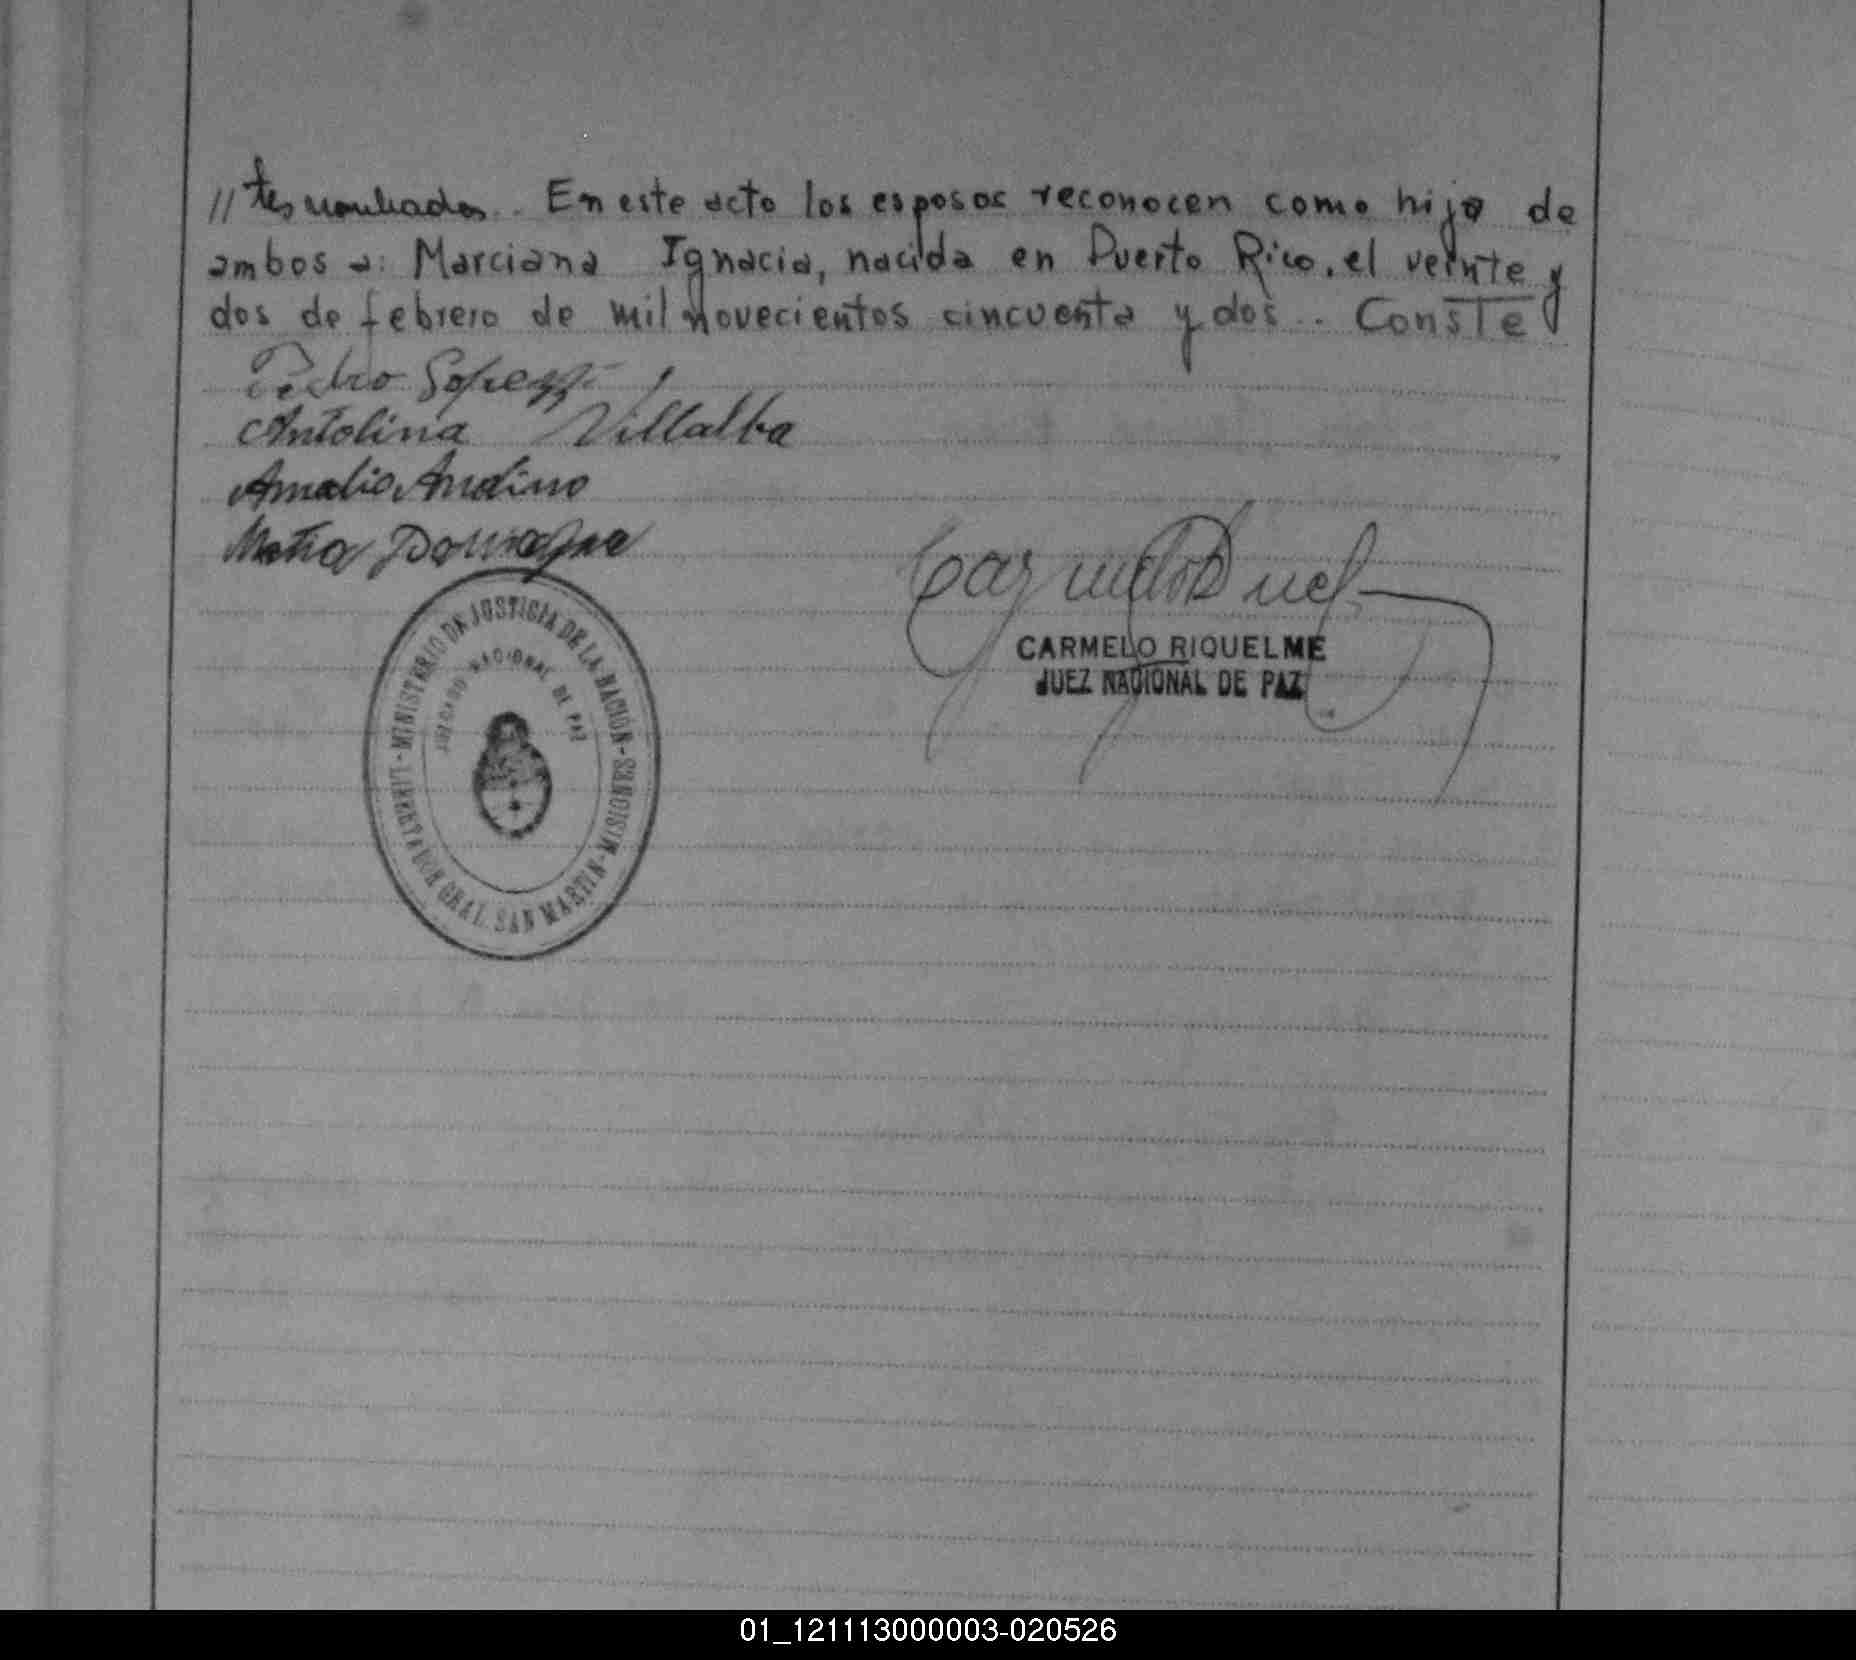 // tes nombrados.. En este acto los esposos reconocen como hija de
ambos a: Marciana Ignacia, nacida en Puerto Rico, el veinte y
dos de febrero de mil novecientos cincuenta y dos.. Conste
Pedro
Antolina Villalba
Amalio Andino
CARMELO RIQUELME
JUEZ NACIONAL DE PAZ
MINISTERIO DE JUSTICIA DE LA NACIÓN - MISIONES -
LIBERTADOR GRAL. SAN MARTIN -
JUZGADO NACIONAL DE PAZ
01_121113000003-020526